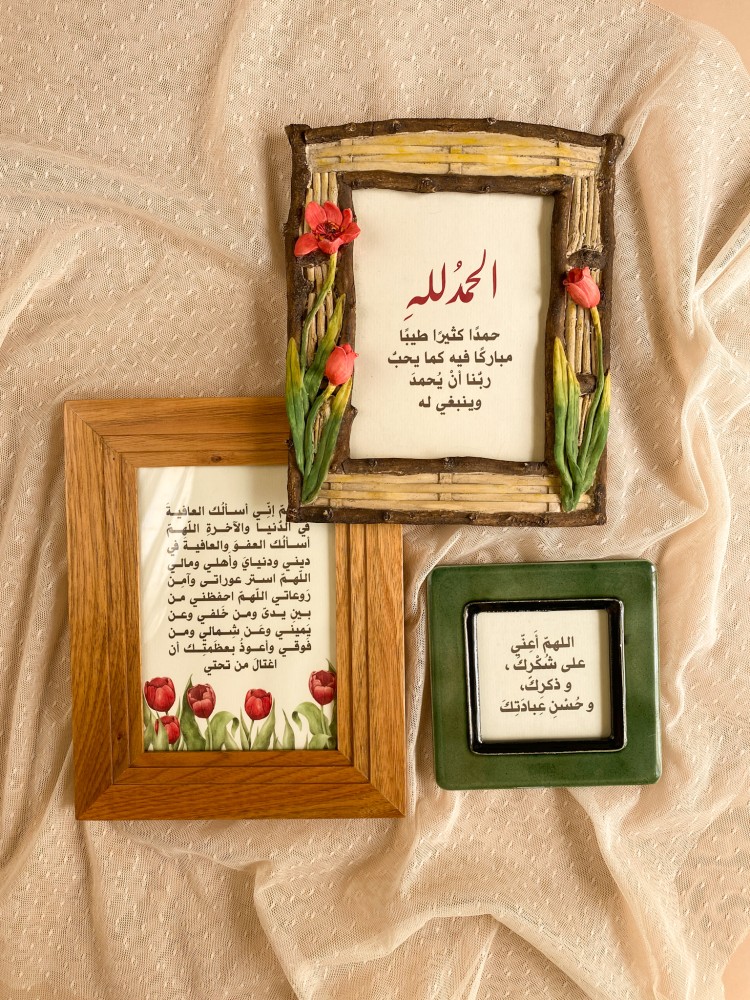 الحمدُ للهِ
حمدًا كثيرًا طيبًا
مباركًا فيه كما يحبُ
ربّنا أنْ يُحمدَ
وينبغي له
إنّي أسألُك العافيةَ
في الدّنيا والآخرةِ اللّهمّ
أسألُك العفوَ والعافيةَ في
ديني ودنيايَ وأهلي ومالي
اللّهمّ استر عوراتى وآمِنْ
رَوعاتي اللّهمّ احفظني من
بينِ يدىَ ومن خَلفي وعن
يَميني وعَن شِمالي ومن
فوقي وأعوذُ بعظَمتِك أن
اغتالَ من تحتي
اللهمّ أَعِنّي
على شُكْرِكَ ،
و ذكرِكَ،
و حُسْنِ عِبادَتِكَ